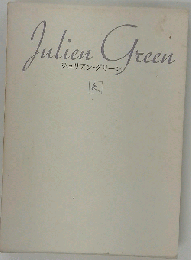 Julien Green
ジュリアン・グリーン